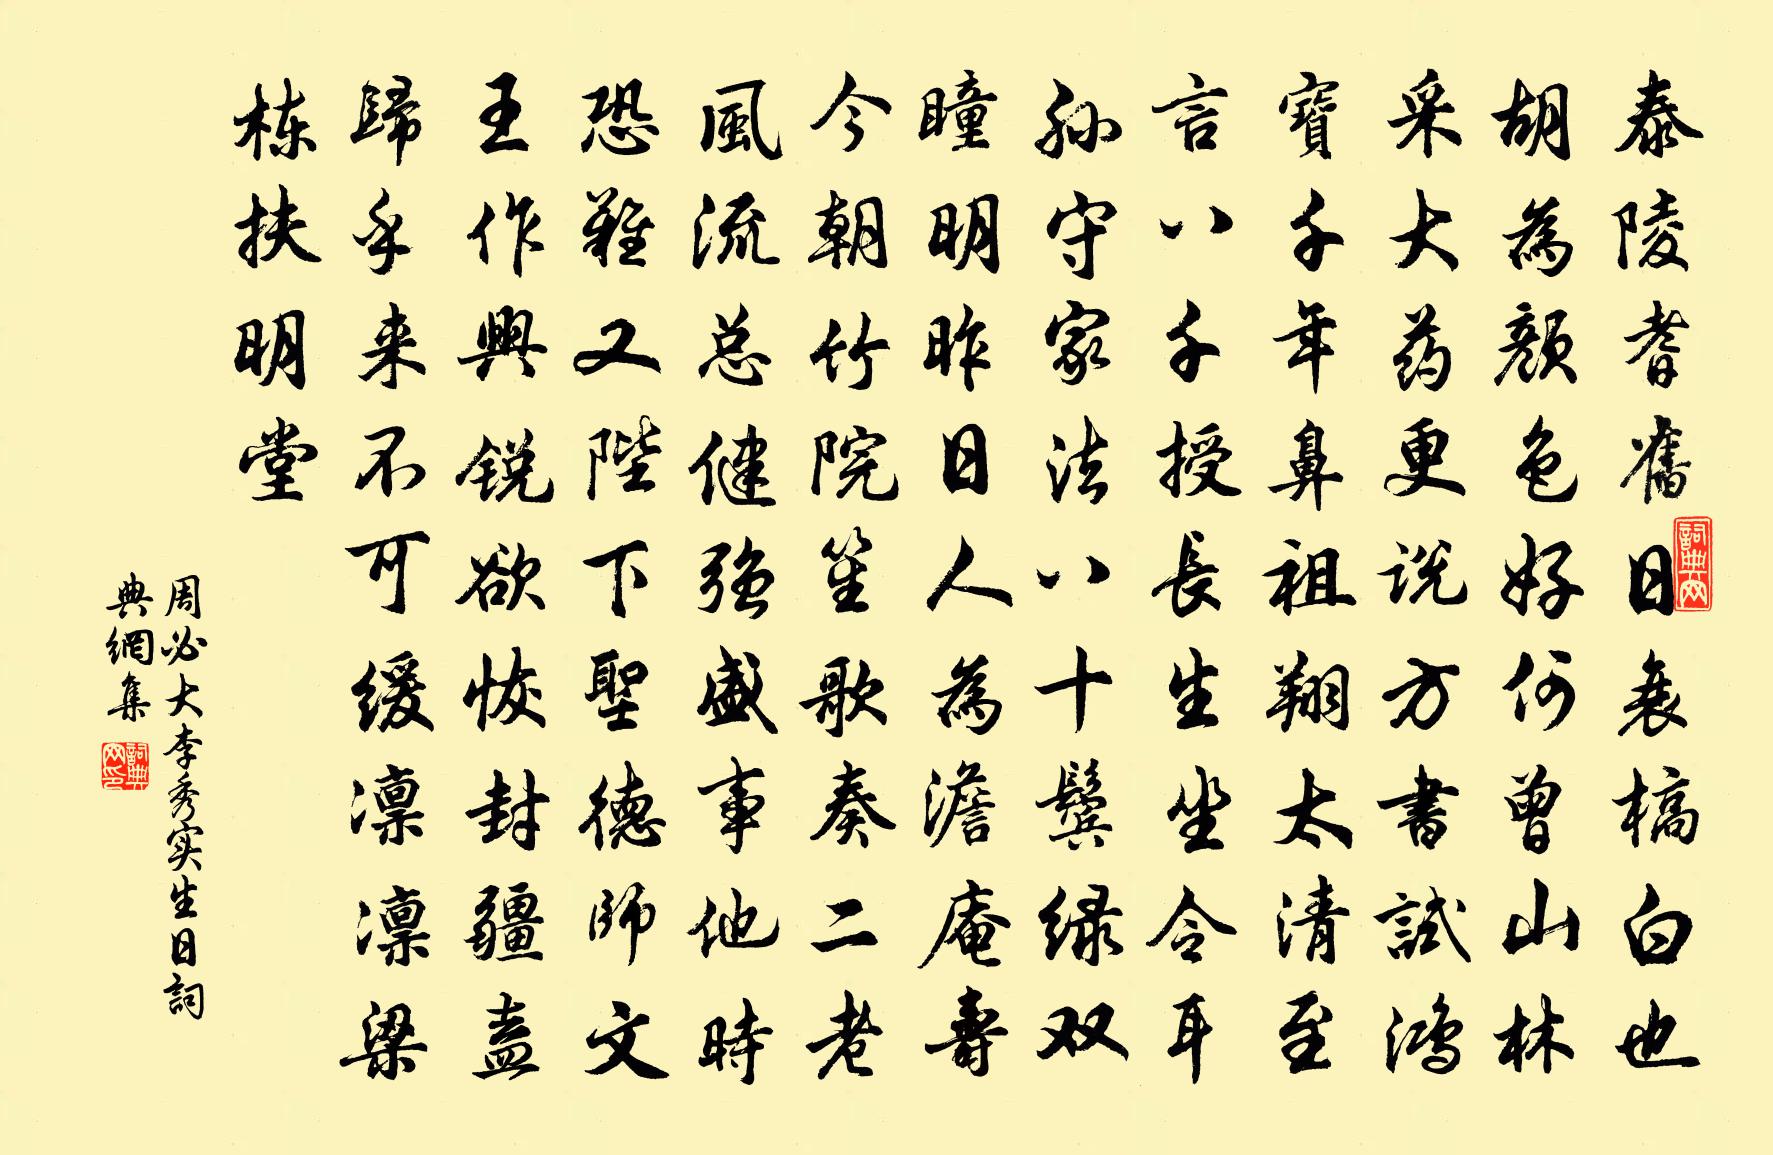 泰陵耆舊日衰槁白也
胡為顏色好何曾山林
采大药更说方書試鴻
寶千年鼻祖翔太清至
言八千授長生坐令耳
孙守家法八十鬓绿双
瞳明昨日人為澹庵壽
今朝竹院笙歌奏二老
風流总健强盛事他時
恐難又陛下聖德師文
王作興锐欲恢封疆盍
歸乎来不可缓凛凛梁
栋扶明堂
周必大李秀实生日詞
典網集
詞典网
詞典网印